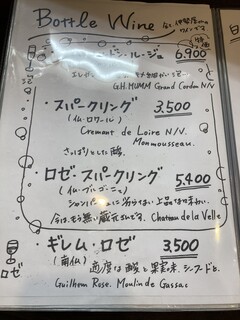 Bottle Wine
ン・ルージュ 6.900
G.H.MUMM Grand Cordon N/V
・スパークリング 3.500
(仏・ロワール)
Cremant de Loire N/V.
Monmousseau.
さっぱりとした
・ロゼ・スパークリング 5.400
(仏・ブルゴーニュ)
シャンパーニュに劣らない上品な味わい。
今はもう無い蔵元さんです。Chateau de la Velle
・ギレム・ロゼ 3,500
(南仏) 適度な酸と果実味、シーフードと。
Guilhem Rose. Moulin de Gassac
ロゼ